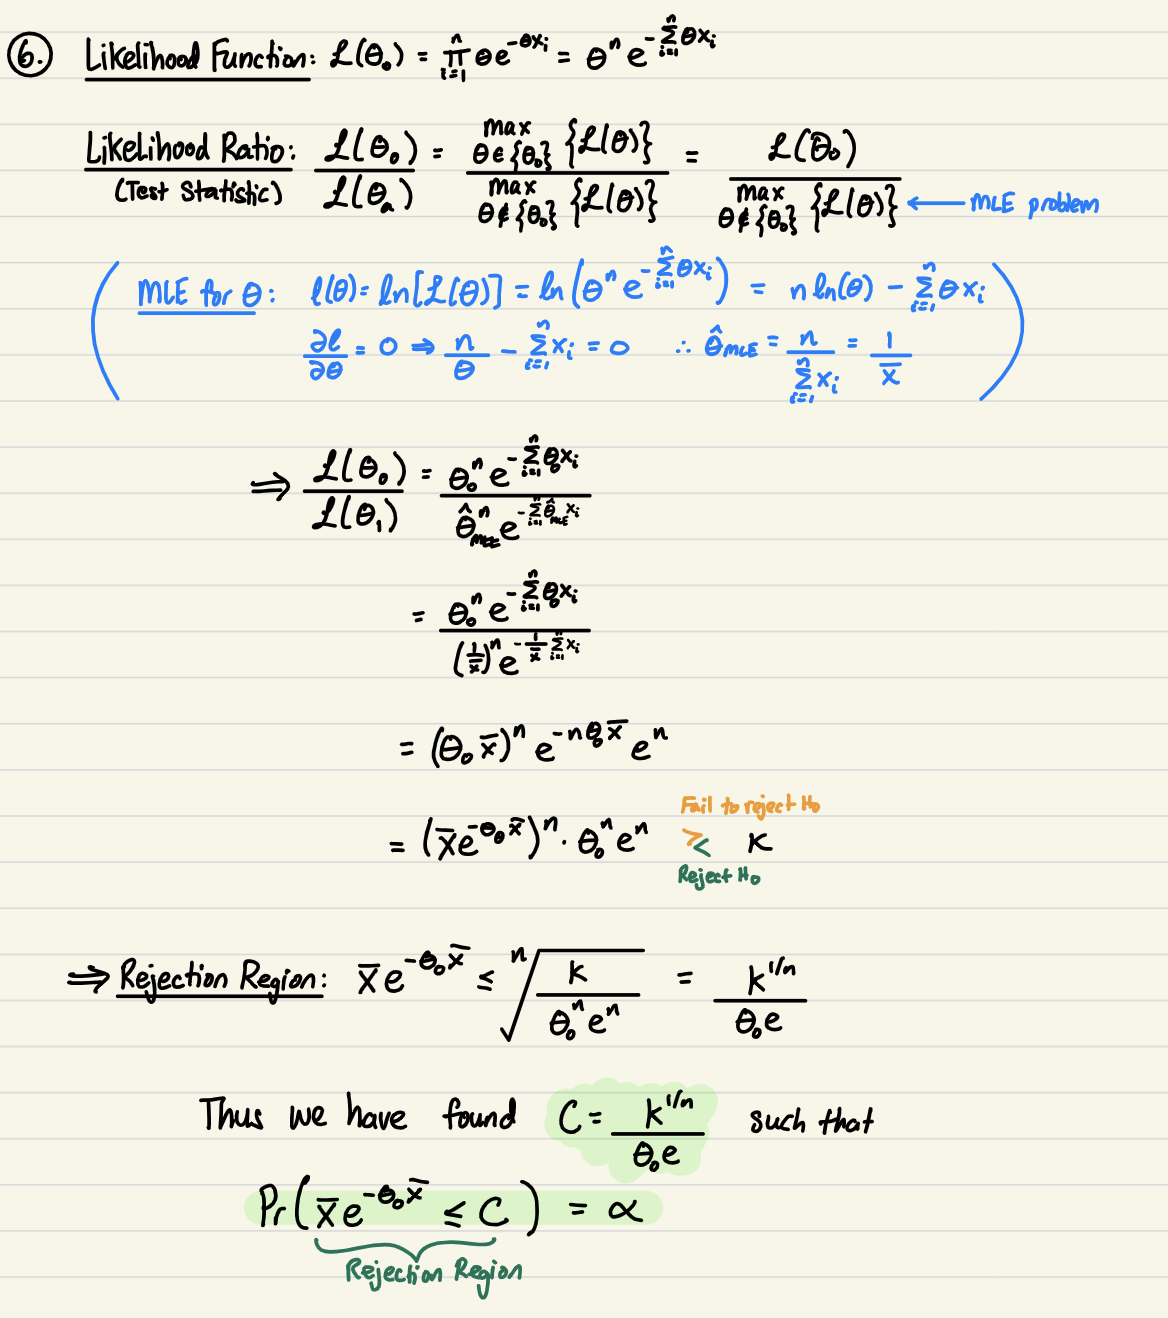 6. Likelihood Function: ℒ(θ₀) = ∏ᵢ₌₁ⁿ θe^(-θxᵢ) = θⁿ e^(-∑ᵢ₌₁ⁿ θxᵢ)
Likelihood Ratio: ℒ(θ₀)/ℒ(θₐ) = max_{θ∈{θ₀}} {ℒ(θ)} / max_{θ∉{θ₀}} {ℒ(θ)} = ℒ(θ₀) / max_{θ∉{θ₀}} {ℒ(θ)} ← MLE problem
(Test Statistic)
(MLE for θ: ℓ(θ) = ln[ℒ(θ)] = ln(θⁿ e^(-∑ᵢ₌₁ⁿ θxᵢ)) = n ln(θ) - ∑ᵢ₌₁ⁿ θxᵢ
∂ℓ/∂θ = 0 ⇒ n/θ - ∑ᵢ₌₁ⁿ xᵢ = 0 ∴ θ̂_MLE = n/∑ᵢ₌₁ⁿ xᵢ = 1/x̄)
⇒ ℒ(θ₀)/ℒ(θ₁) = θ₀ⁿ e^(-∑ᵢ₌₁ⁿ θ₀xᵢ) / θ̂ⁿ_MLE e^(-∑ᵢ₌₁ⁿ θ̂_MLE xᵢ)
= θ₀ⁿ e^(-∑ᵢ₌₁ⁿ θ₀xᵢ) / (1/x̄)ⁿ e^(-1/x̄ ∑ᵢ₌₁ⁿ xᵢ)
= (θ₀ x̄)ⁿ e^(-nθ₀x̄) eⁿ
Fail to reject H₀
= (x̄e^(-θ₀x̄))ⁿ · θ₀ⁿ eⁿ ≥ < K
Reject H₀
⇒ Rejection Region: x̄e^(-θ₀x̄) ≤ ⁿ√(k/(θ₀ⁿeⁿ)) = k^(1/n)/(θ₀e)
Thus we have found C = k^(1/n)/(θ₀e) such that
Pr(x̄e^(-θ₀x̄) ≤ C) = α
Rejection Region